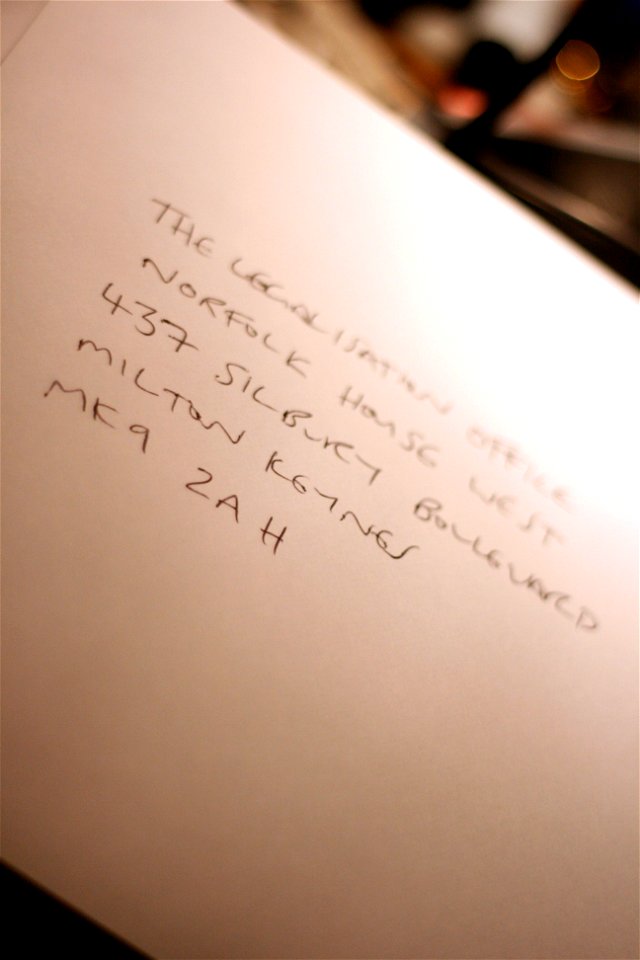 THE LEGALISATION OFFICE
NORFOLK HOUSE WEST
437 SILBURY BOULEVARD
MILTON KEYNES
MK9 2AH